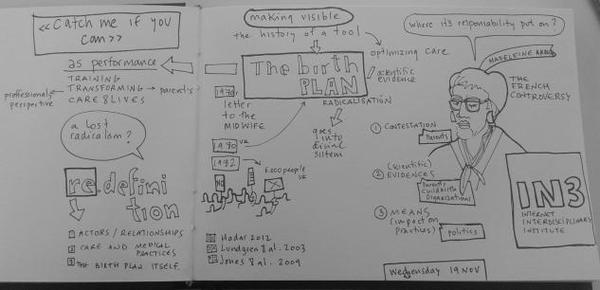 <<Catch me if you
can>>
as performance
TRAINING
TRANSFORMING
CARE & LIVES
proffessional's
perspective
parent's
a lost
radicalism?
re.defini
tion
1 ACTORS / RELATIONSHIPS
2 CARE AND MEDICAL
PRACTICES
3 THE BIRTH PLAN ITSELF
making visible
the history of a tool
The birth
PLAN
optimizing care
scientific
evidence
RADICALISATION
goes
into
letter
to the
MIDWIFE
1970
UK
1972
6.000 people
UK
NO
Hadar 2012
Lundgren & al. 2003
Jones & al. 2009
where its responsability put on?
MADELEINE
THE
FRENCH
CONTROVERSY
1 CONTESTATION
Parents
2 (scientific)
EVIDENCES
Parents
Childbirth
Organizations
3 MEANS
(impact on
practices)
politics
IN3
INTERNET
INTERDISCIPLINARY
INSTITUTE
Wednesday 19 NOV